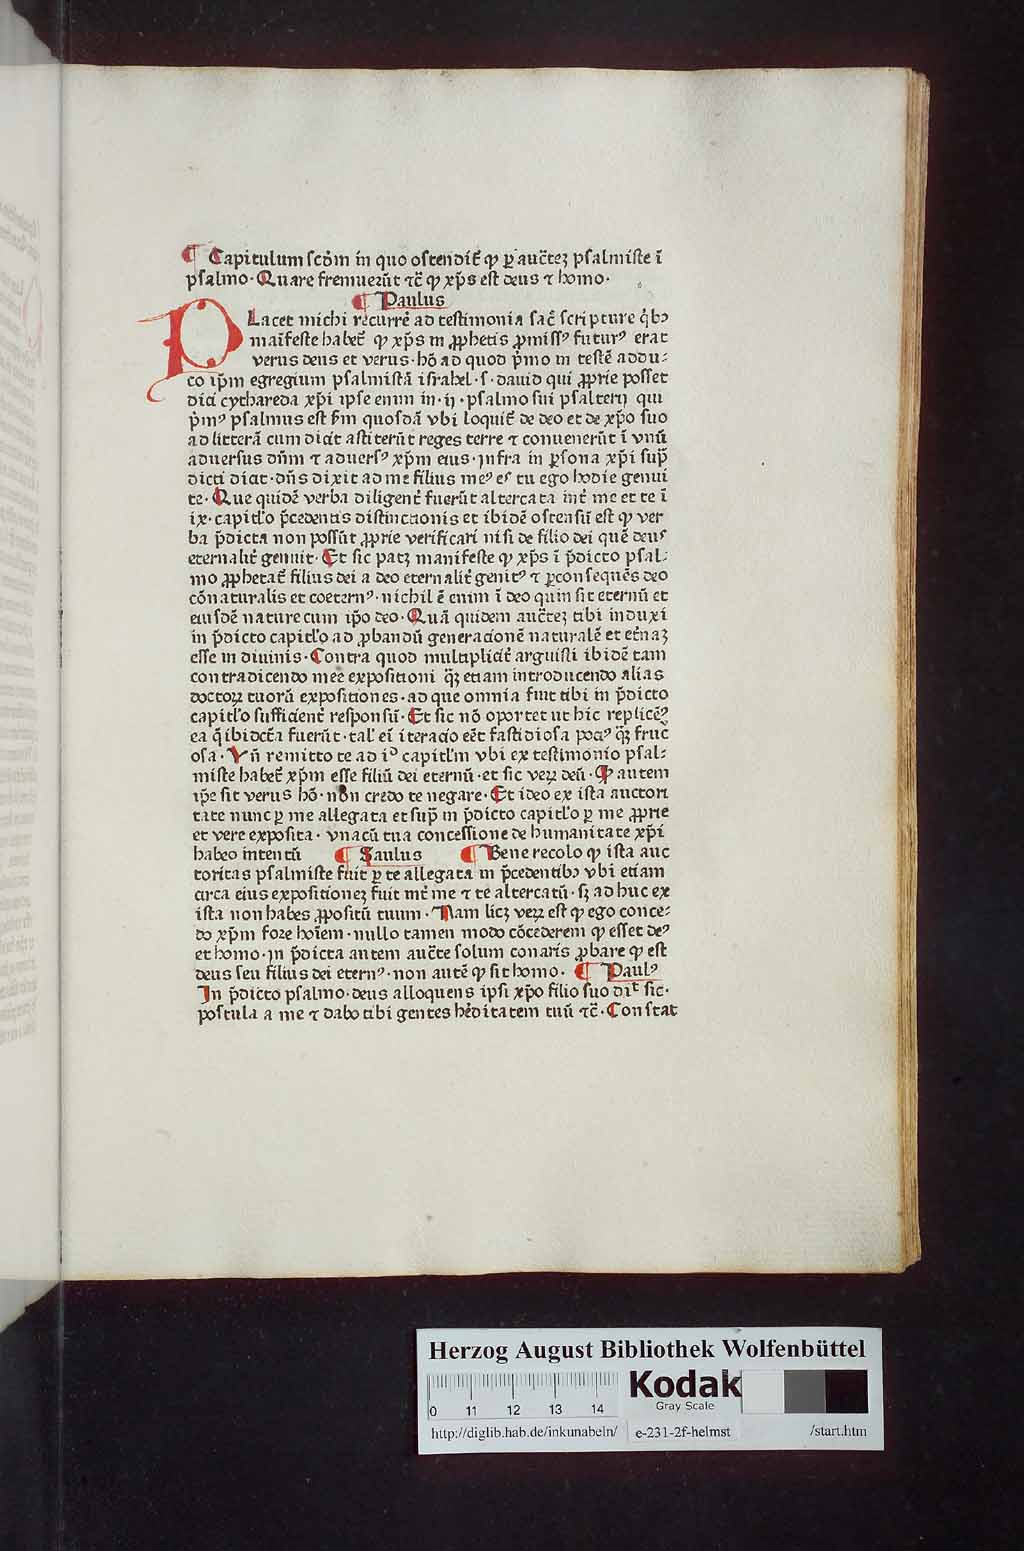 ¶ Capitulum scd̄m in quo ostendit̄ ꝙ ꝑ auct̄eꝫ psalmiste ī
psalmo · Quare fremuerūt ⁊c̄ ꝙ xp̄s est deus ⁊ homo ·
¶ Paulus
PLacet michi recurrē ad testimonia sac̄ scripture q̄bꝫ
maīfeste habet̄ ꝙ xp̄s in ꝓphetis ꝓmissꝰ futurꝰ erat
verus deus et verus · hō ad quod p̄mo in testē addu⸗
co ip̄m egregium psalmistā israhel · s · dauid qui ꝓprie posset
dici cythareda xp̄i ipse enim in · ij · psalmo sui psalterij qui
p̄mꝰ psalmus est s̄m quosdā vbi loquit̄ de deo et de xp̄o suo
ad litterā cum dicit astiterūt reges terre ⁊ conuenerūt ī vnū
aduersus dn̄m ⁊ aduersꝰ xp̄m eius · infra in ꝑsona xp̄i sup̄
dicti dicit · dn̄s dixit ad me filius meꝰ es tu ego hodie genui
te · Que quidē verba diligent̄ fuerūt altercata int̄ me et te ī
ix · capitl̓o p̄cedentis distinctionis et ibidē ostensū est ꝙ ver
ba p̄dicta non possūt ꝓprie verificari nisi de filio dei quē deus
eternalit̄ genuit · Et sic patꝫ manifeste ꝙ xp̄s ī p̄dicto psal⸗
mo ꝓphetat̄ filius dei a deo eternalit̄ genitꝰ ⁊ ꝑconsequēs deo
cōnaturalis et coeternꝰ · nichil ē enim ī deo quin sit eternū et
eiusdē nature cum ip̄o deo · Quā quidem auct̄eꝫ tibi induxi
in p̄dicto capitl̓o ad ꝓbandū generacionē naturalē et et̄naꝫ
esse in diuinis · Contra quod multiplicit̄ arguisti ibidē tam
contradicendo mee expositioni q̄ꝫ etiam introducendo alias
doctoꝝ tuorū expositiones · ad que omnia fuit tibi in p̄dicto
capitl̓o sufficient̄ responsū · Et sic nō oportet ut hic replicēt̄
ea q̄ ibi dct̄a fuerūt · tal̓ ei̇̄ iteracio eēt fastidiosa pociꝰ q̄ꝫ fruc
osa · Vn̄ remitto te ad iᵒ capitl̓m vbi ex testimonio psal⸗
miste habet̄ xp̄m esse filiū dei eternū · et sic veꝝ deū · ꝙ autem
ip̄e sit verus hō · non credo te negare · Et ideo ex ista auctori
tate nunc ꝑ me allegata et sup̄ in p̄dicto capitl̓o ꝑ me ꝓprie
et vere exposita · vnacū tua concessione de humanitate xp̄i
habeo intentū ¶ Saulus ¶ Bene recolo ꝙ ista auc
toritas psalmiste fuit ꝑ te allegata in p̄cedentibꝫ vbi etiam
circa eius expositioneꝫ fuit int̄ me ⁊ te altercatū · sꝫ ad huc ex
ista non habes ꝓpositū tuum · Nam licꝫ veꝝ est ꝙ ego conce⸗
do xp̄m fore hoīem · nullo tamen modo cōcederem ꝙ esset deꝰ
et homo · in p̄dicta autem auct̄e solum conaris ꝓbare ꝙ est
deus seu filius dei eternꝰ · non autē ꝙ sit homo · ¶ Paulꝰ
In p̄dicto psalmo · deus alloquens ipsi xp̄o filio suo dit̄ sic ·
postula a me ⁊ dabo tibi gentes hēditatem tuū ⁊c̄ · Constat
Herzog August Bibliothek Wolfenbüttel
0 11 12 13 14
Kodak
Gray Scale
http://diglib.hab.de/inkunabeln/ e-231-2f-helmst /start.htm